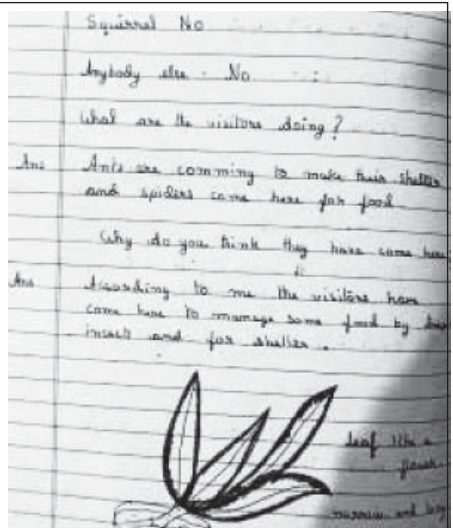 Squirrel No
Anybody else . No
What are the visitors doing?
Ans Ants are comming to make their shelter
and spiders came here for food
Why do you think they have came here
Ans According to me the visitors have
came here to manage some food by
insects and for shelter .
leaf like a
flower
narrow and long